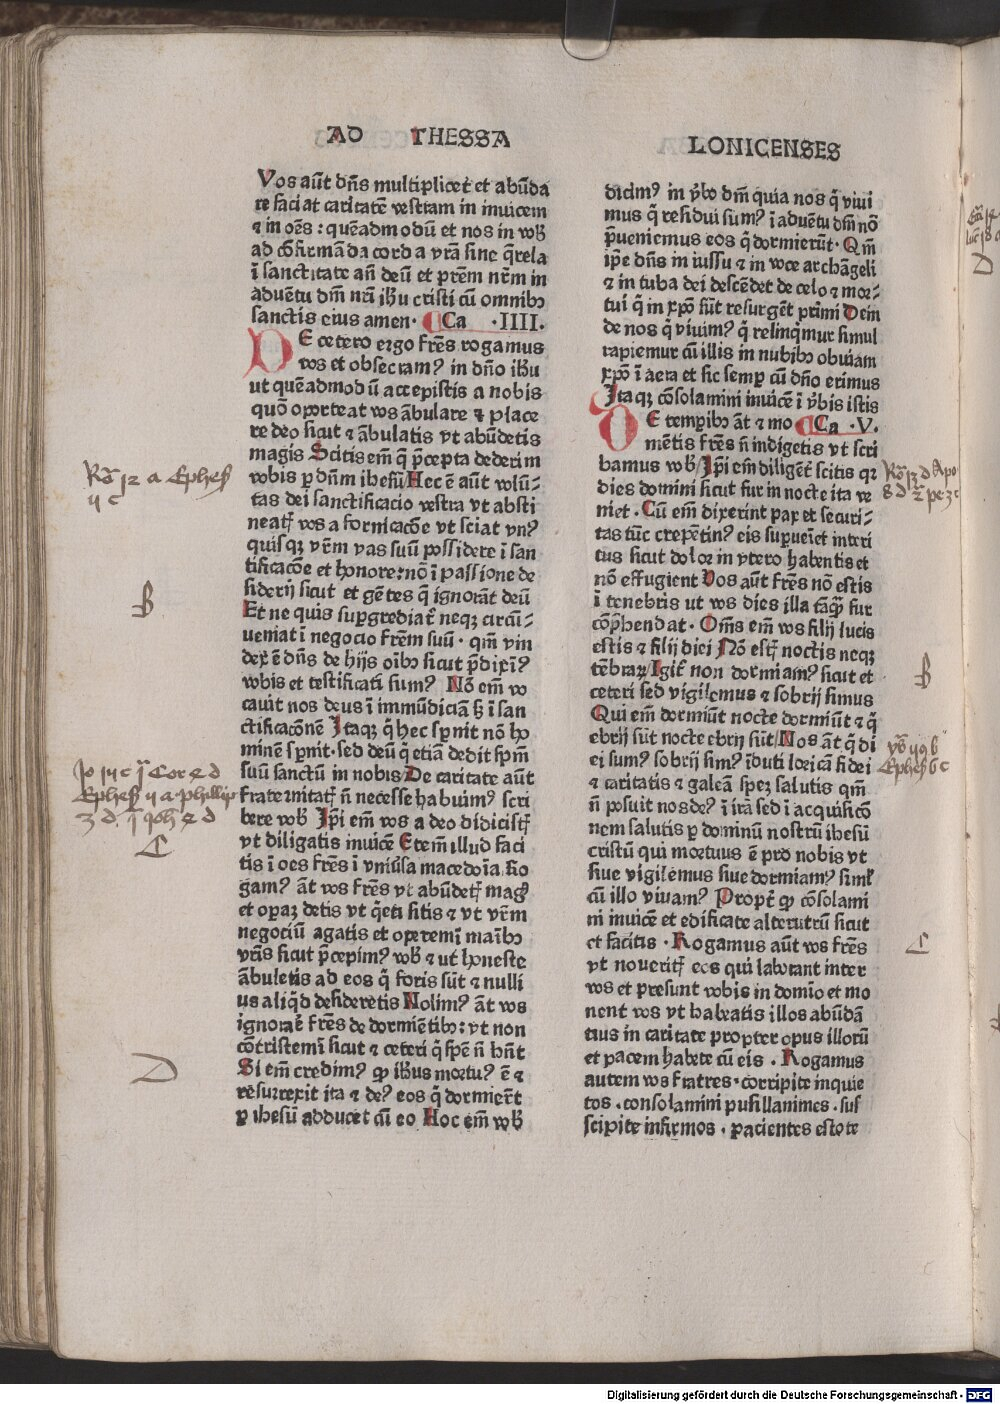 AD THESSA
Vos aūt dn̄s multiplicet et abūda
re faciat caritatē vestram in inuicem
⁊ in oēs : quēadmodū et nos in vob̄
ad cōfirmāda corda vr̄a sine q̄rela
ī sanctitate an̄ deū et prēm nr̄m in
aduētu dn̄i nr̄i ihū cristi cū omnibꝫ
sanctis eius amen· Ca ·IIII.
DE cetero ergo fr̄es rogamus
vos et obsecram⁹ in dn̄o ihū
ut quēadmodū accepistis a nobis
quō oporteat vos ābulare ⁊ place
re deo sicut ⁊ ābulatis vt abūdetis
magis Scitis em̄ q̄ p̄cepta dederim
vobis ꝑ dn̄m ihesū/Hec ē aūt volū⸗
tas dei sanctificatio vestra vt absti
neatꝭ vos a fornicacōe vt sciat vn⁹
quisqꝫ vr̄m vas suū possidere ī san
tificacōe et honore: nō ī passione de
siderij sicut et gētes q̄ ignorāt deū
Et ne quis supgrediat̄ neqꝫ circū⸗
ueniat ī negocio fr̄em suū · qm̄ vin
dex ē dn̄s de hijs oībꝫ sicut p̄dixī⁹
vobis et testificati sum⁹ Nō em̄ vo
cauit nos deus ī immūdiciā sꝫ ī san
ctificacōnē Itaqꝫ q̄ hec sp̄nit nō ho
minē sp̄nit· sed deū q̄ etiā dedit spm̄
suū sanctū in nobis/De caritate aūt
fraternitatꝭ n̄ necesse habuim⁹ scri
bere vob̄ Ip̄i em̄ vos a deo didicistꝭ
vt diligatis inuicē Etem̄ illud faci
tis ī oēs fr̄es ī vniūsa macedoīa Ro
gam⁹ āt vos fr̄es vt abūdetꝭ magꝭ
et operaꝫ detis vt q̄eti sitis ⁊ vt vr̄m
negociū agatis et operemī maībꝫ
vr̄is sicut p̄cepim⁹ vob̄ ⁊ ut honeste
ābuletis ad eos q̄ foris sūt ⁊ nulli
us aliq̄d desideretis Nolim⁹ āt vos
ignorare fr̄es de dormiētibꝫ: vt non
cōtristemī sicut ⁊ ceteri q̄ spē n̄ hn̄t
Si em̄ credim⁹ qp ihūs mortu⁹ ē ⁊
resurrexit ita ⁊ de⁹ eos q̄ dormiert̄
ꝑ ihesū adducet cū eo Hoc em̄ vob̄
LONICENSES
dicim⁹ in v̄bo dn̄i quia nos q̄ viui
mus q̄ residui sum⁹ ī aduētu dn̄i nō
p̄ueniemus eos q̄ dormierūt· Qm̄
ip̄e dn̄s in iussu ⁊ in voce archāgeli
⁊ in tuba dei descēdet de celo ⁊ mor⸗
tui q̄ in xp̄o sūt resurgēt primi Dein
de nos q̄ viuim⁹ q̄ relinq̄mur simul
rapiemur cū illis in nubibꝫ obuiam
xp̄o ī aera et sic semꝑ cū dn̄o erimus
Itaqꝫ cōsolamini inuicē ī v̄bis istis
DE tempibꝫ āt ⁊ mo Ca ·V.
mētis fr̄es n̄ indigetis vt scri
bamus vob̄/Ip̄i em̄ diligēt̄ scitis qꝛ
dies domini sicut fur in nocte ita ve
niet · Cū em̄ dixerint pax et securi⸗
tas tūc crepētin⁹ eis supueīet interi
tus sicut dolor in vtero habentis et
nō effugient Vos aūt fr̄es nō estis
ī tenebris ut vos dies illa tāqꝫ fur
cōp̄hendat · Om̄s em̄ vos filij lucis
estis ⁊ filij diei Nō estꝭ noctis neqꝫ
tēbraꝝ/Igit̄ non dormiam⁹ sicut et
ceteri sed vigilemus ⁊ sobrij simus
Qui em̄ dormiūt nocte dormiūt ⁊ q̄
ebrij sūt nocte ebrij sūt/Nos āt q̄ di
ei sum⁹ sobrij sim⁹ īduti loricā fidei
⁊ caritatis ⁊ galeā speꝫ salutis qm̄
n̄ posuit nos de⁹ ī irā sed ī acquisicō
nem salutis ꝑ dominū nostrū ihesū
cristū qui mortuus ē pro nobis vt
siue vigilemus siue dormiam⁹ siml̄
cū illo viuam⁹ Propt̄ qp cōsolami
ni inuicē et edificate alterutrū sicut
et facitis · Rogamus aūt vos fr̄es
vt noueritꝭ eos qui laborant inter
vos et presunt vobis in domīo et mo
nent vos vt habeatis illos abūdā
tius in caritate propter opus illorū
et pacem habete cū eis . Rogamus
autem vos fratres· corripite inquie
tos . consolamini pusillanimes · sus
scipite infirmos . pacientes estote
B
C
D
B
C
Digitalisierung gefördert durch die Deutsche Forschungsgemeinschaft - DFG